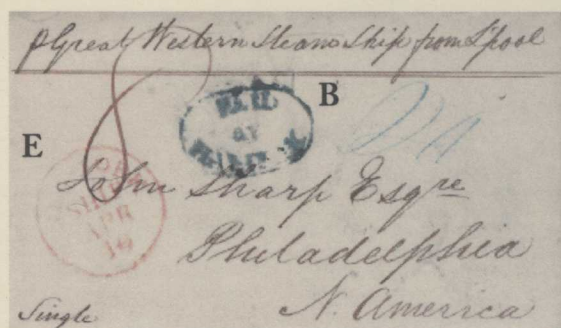 p Great Western Steam Ship from L'pool
8
B
E
PAID
SHIP
APR
John Sharp Esqre
Philadelphia
N. America
Single